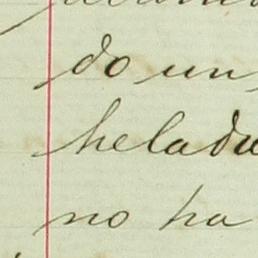 do un
helada
no ha